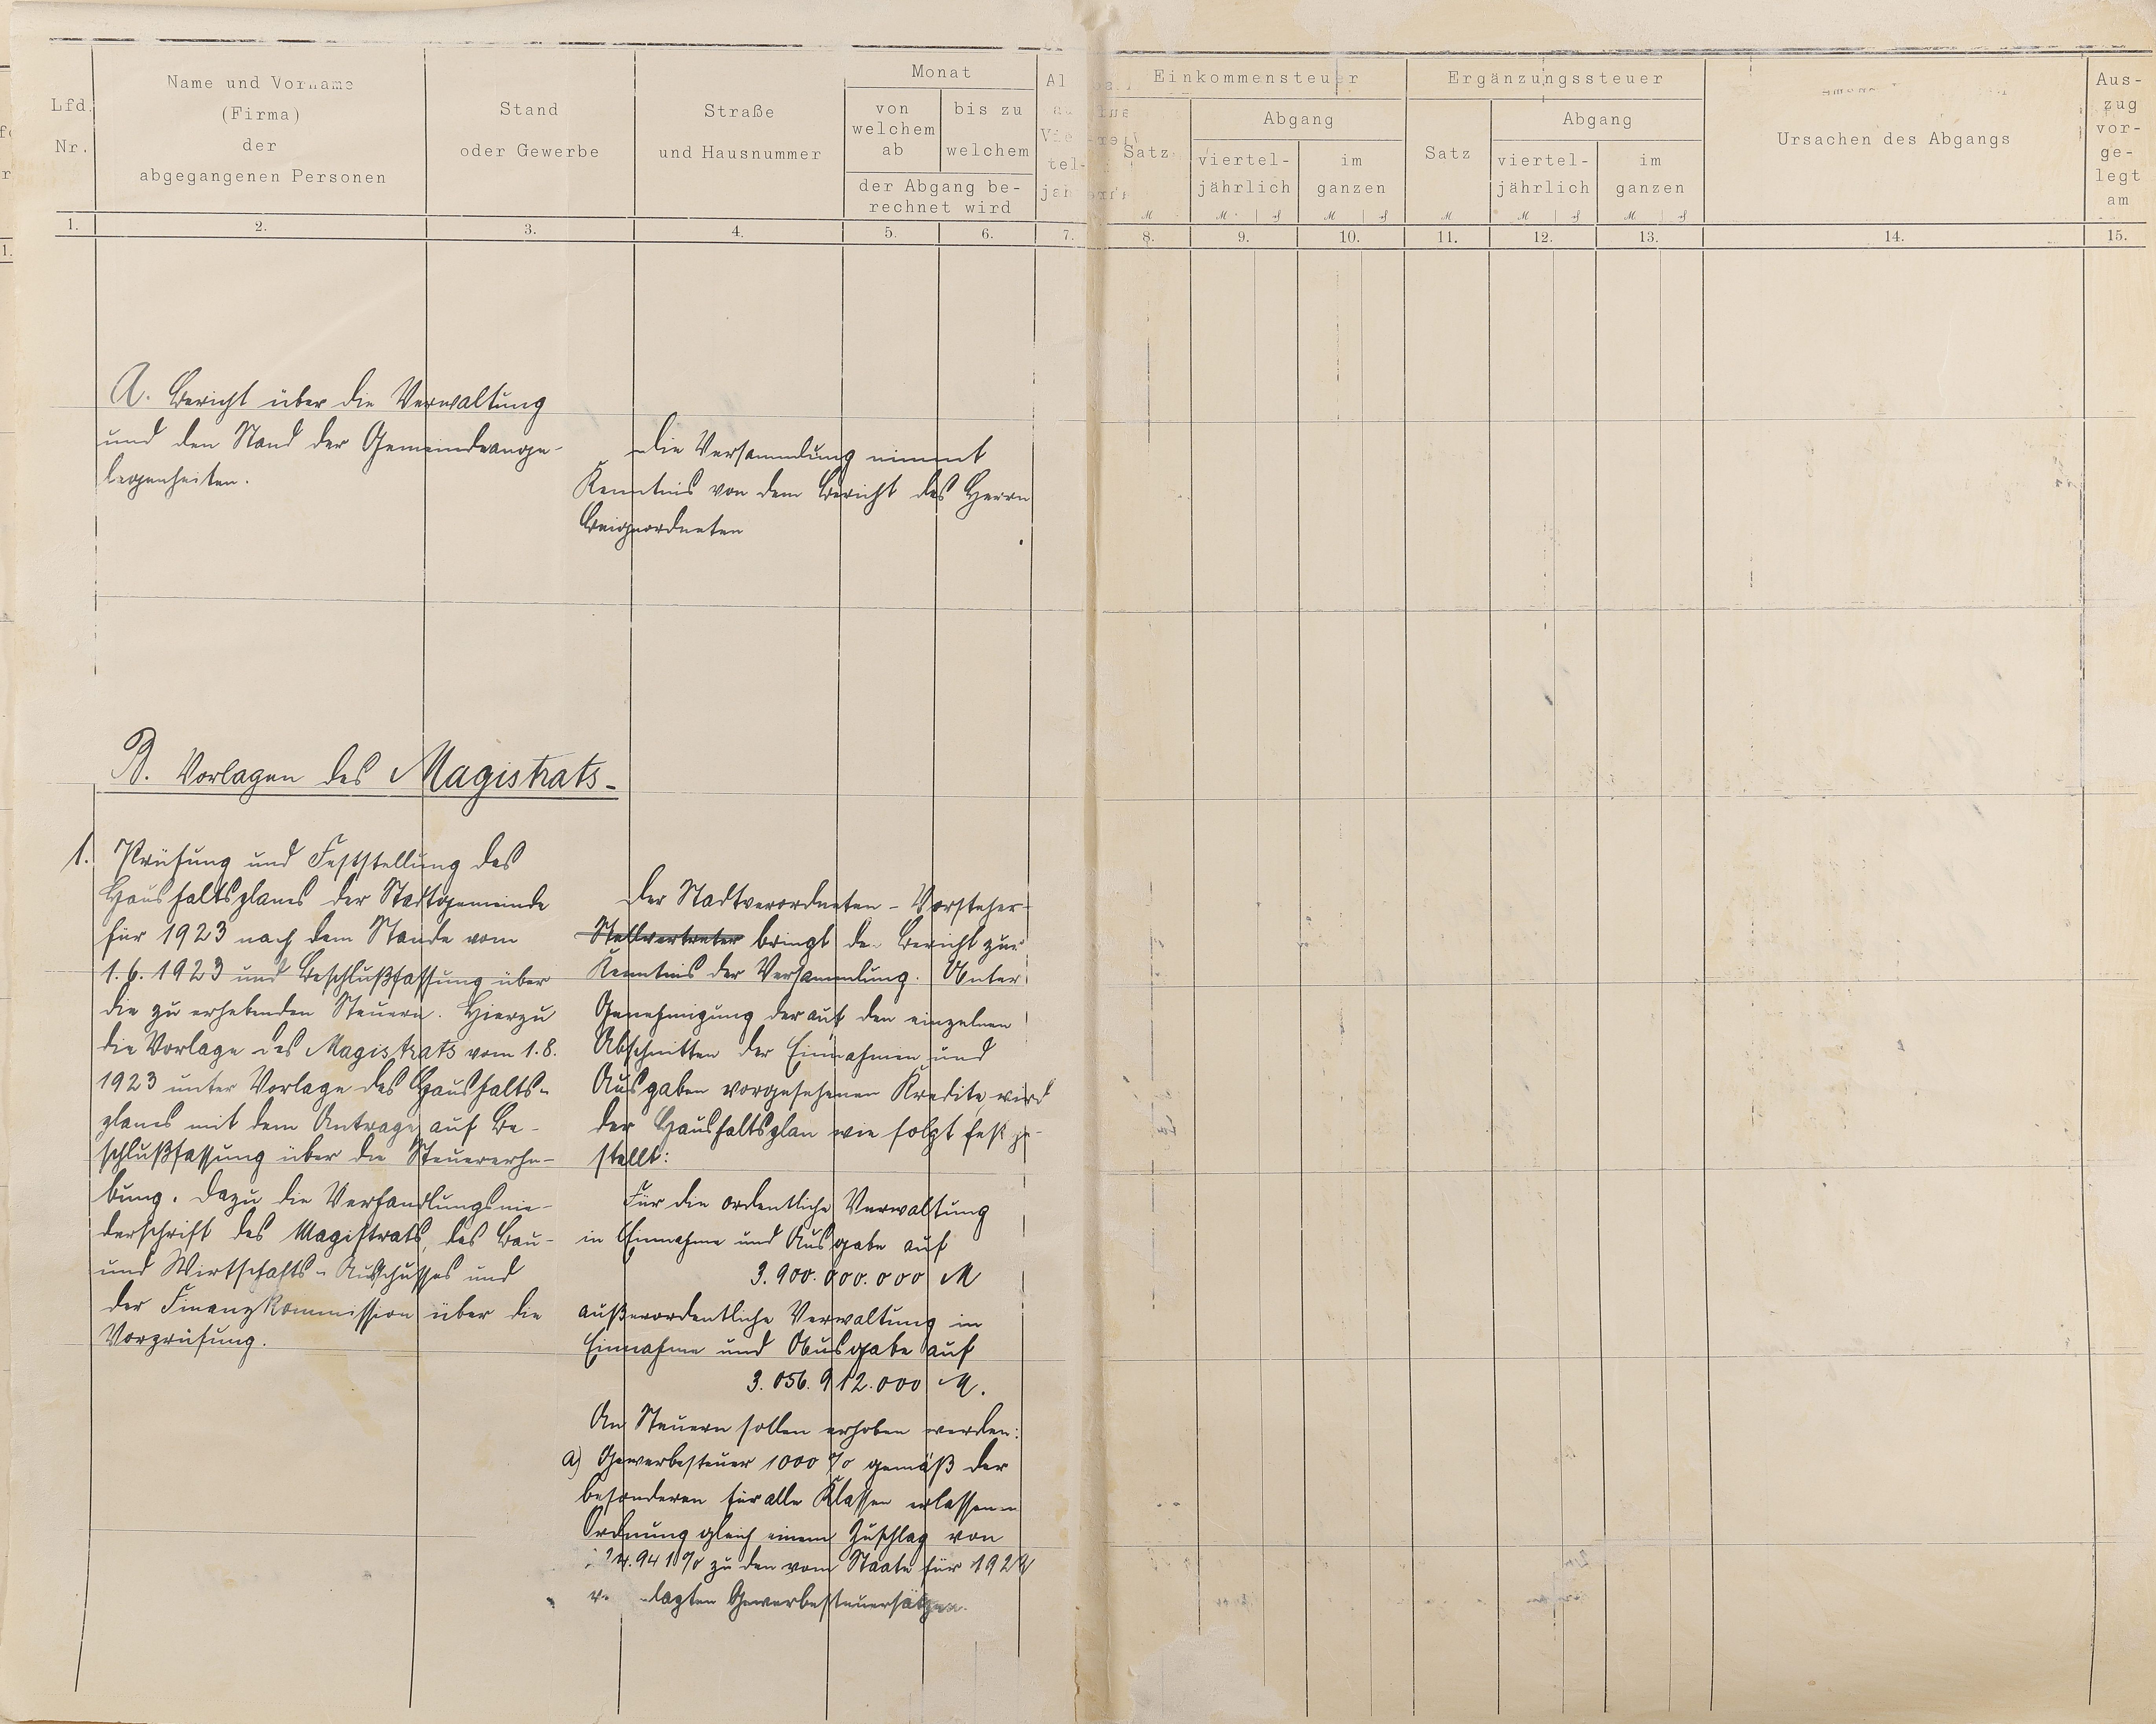 Lfd.
Nr.
Name und Vorname
(Firma)
der
abgegangenen Personen
Stand
oder Gewerbe
Straße
und Hausnummer
Monat
von
welchem
ab
bis zu
welchem
der Abgang be-
rechnet wird
Einkommensteuer
Satz
Abgang
viertel-
jährlich
im
ganzen
Ergänzungssteuer
Satz
Abgang
viertel-
jährlich
im
ganzen
Ursachen des Abgangs
Aus-
zug
vor-
ge-
legt
am
1. 2. 3. 4. 5. 6. 7. 8. 9. 10. 11. 12. 13. 14. 15.
A. Bericht über die Verwaltung
und den Stand der Gemeindeange-
legenheiten.
Die Versammlung nimmt
Kenntnis von dem Bericht des Herrn
Beigeordneten
B. Vorlagen des Magistrats-
1. Prüfung und Feststellung des
Haushaltsplanes der Stadtgemeinde
für 1923 nach dem Stande vom
1.6.1923 und Beschlußfassung über
die zu erhebenden Steuern. Hierzu
die Vorlage des Magistrats vom 1.8.
1923 unter Vorlage des Haushalts-
planes mit dem Antrage auf Be-
schlußfassung über die Steuererhe-
bung. Dazu die Verhandlungsnie-
derschrift des Magistrats, des Bau-
und Wirtschafts-Ausschusses und
der Finanzkommission über die
Vorprüfung.
Der Stadtverordneten-Vorsteher-
Stellvertreter bringt den Bericht zur
Kenntnis der Versammlung. Unter
Genehmigung der auf den einzelnen
Abschnitten der Einnahmen und
Ausgaben vorgesehenen Kredite, wird
der Haushaltsplan wie folgt fest ge-
stellt:
Für die ordentliche Verwaltung
in Einnahme und Ausgabe auf
3.900.000.000 M
außerordentliche Verwaltung in
Einnahme und Ausgabe auf
3.056.912.000 M.
An Steuern sollen erhoben werden:
a) Gewerbesteuer 1000 % gemäß der
besonderen für alle Klassen erlassenen
Ordnung gleich einem Zuschlag von
4.941 % zu den vom Staate für 192
lagten Gewerbesteuersätzen.